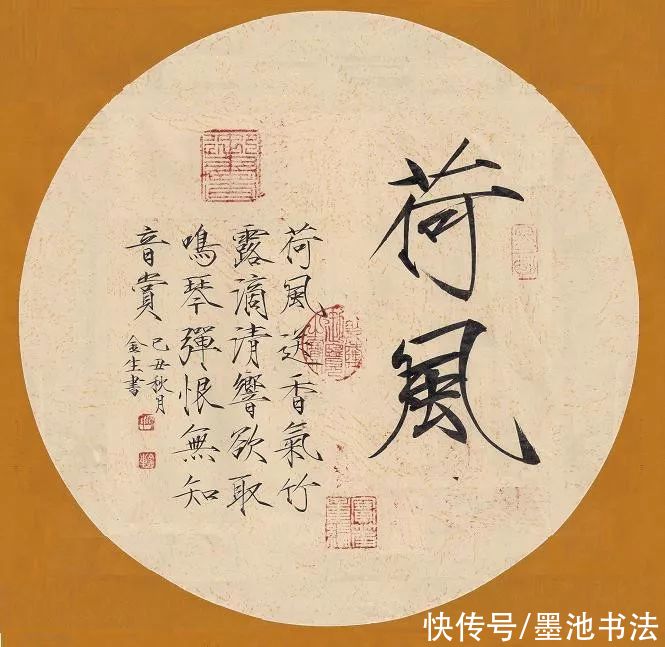 荷風
荷風送香氣竹
露滴清響欲取
鳴琴彈恨無知
音賞
己丑秋月
金生書
快传号/墨池书法